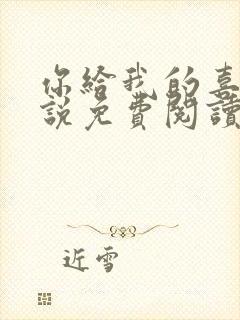 你給我的喜
說免費閱讀
近雪